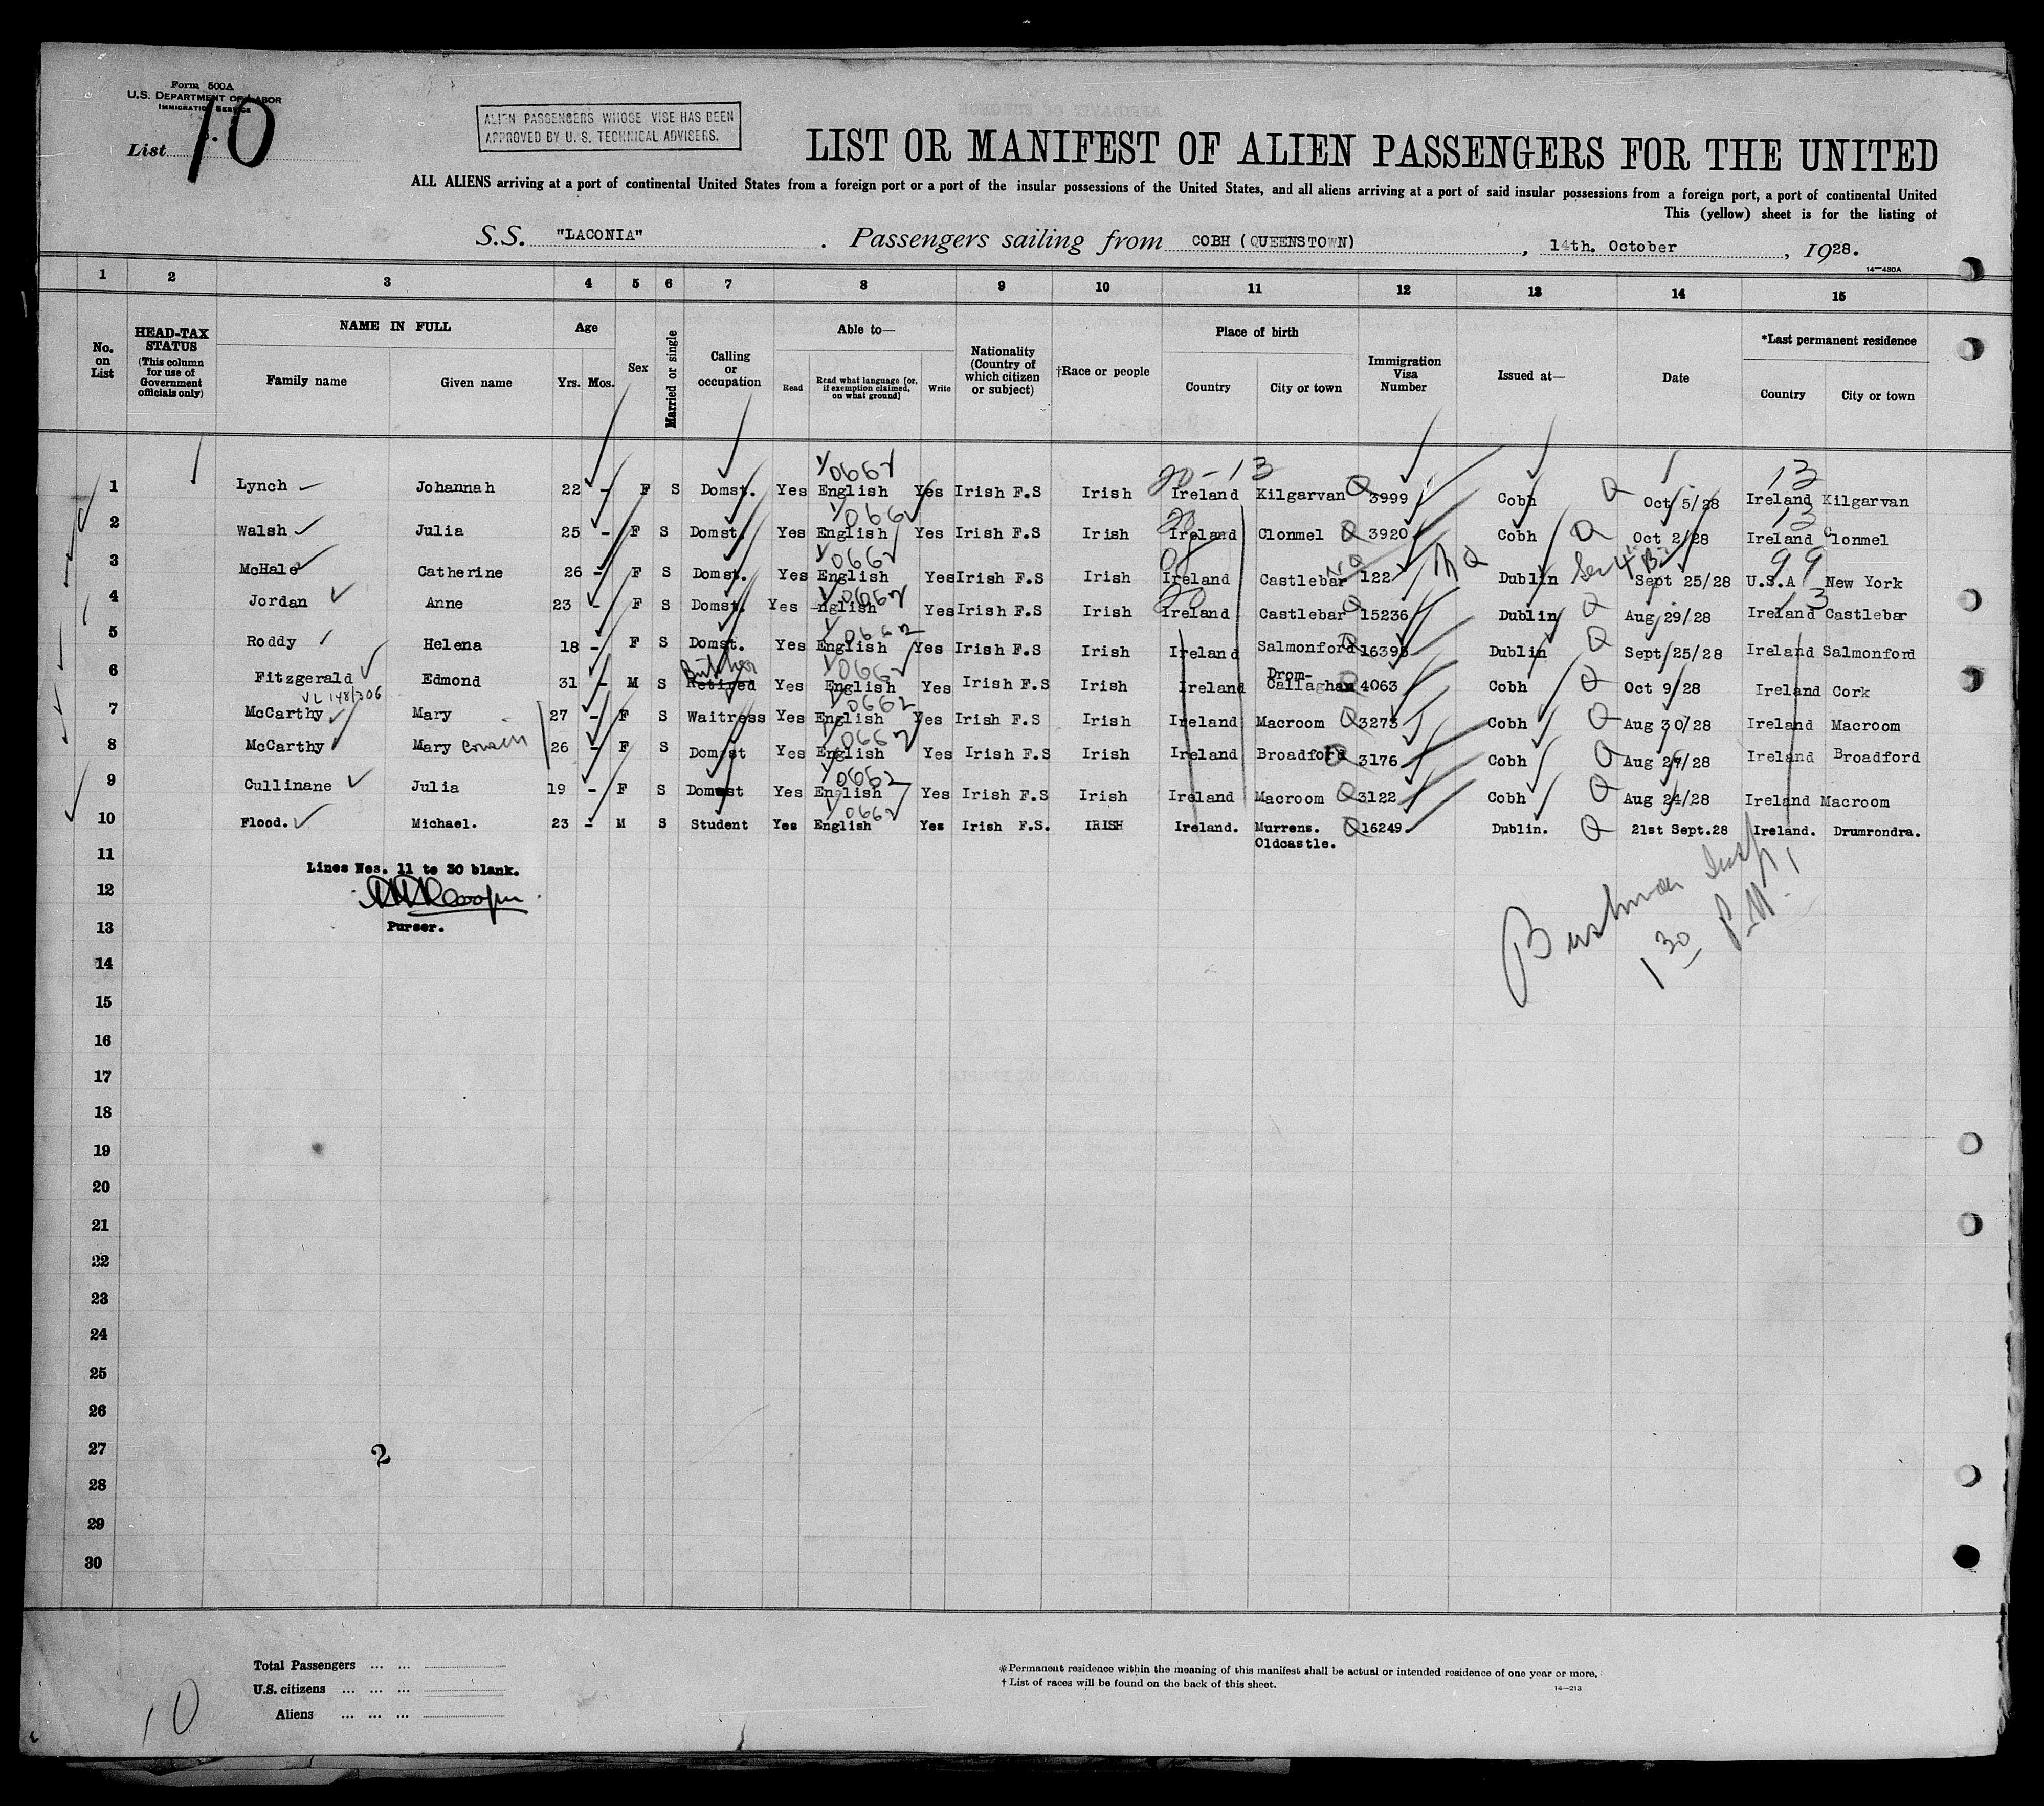 Form 500A
U.S. DEPARTMENT OF LABOR
IMMIGRATION SERVICE
List 10
ALIEN PASSENGERS WHOSE VISE HAS BEEN
APPROVED BY U. S. TECHNICAL ADVISERS.
LIST OR MANIFEST OF ALIEN PASSENGERS FOR THE UNITED
ALL ALIENS arriving at a port of continental United States from a foreign port or a port of the insular possessions of the United States, and all aliens arriving at a port of said insular possessions from a foreign port, a port of continental United
This (yellow) sheet is for the listing of
S.S. "LACONIA" . Passengers sailing from COBH (QUEENSTOWN) , 14th. October , 1928.
14—430A
1 2 3 4 5 6 7 8 9 10 11 12 13 14 15
No. on List
HEAD-TAX STATUS
(This column for use of Government officials only)
NAME IN FULL
Family name Given name
Age
Yrs. Mos.
Sex
Married or single
Calling or occupation
Able to—
Read Read what language [or, if exemption claimed, on what ground] Write
Nationality (Country of which citizen or subject)
†Race or people
Place of birth
Country City or town
Immigration Visa Number
Issued at—
Date
*Last permanent residence
Country City or town
0662 20-13 13
1 Lynch Johannah 22 - F S Domst. Yes English Yes Irish F.S Irish Ireland Kilgarvan Q 3999 Cobh Q Oct 5/28 Ireland Kilgarvan
0662 20 13
2 Walsh Julia 25 - F S Domst. Yes English Yes Irish F.S Irish Ireland Clonmel Q 3920 Cobh Q Oct 2/28 Ireland Clonmel
0662 NQ NQ Sec 4 B 99
3 McHale Catherine 26 - F S Domst. Yes English Yes Irish F.S Irish Ireland Castlebar 122 Dublin Sept 25/28 U.S.A New York
0662 20 13
4 Jordan Anne 23 - F S Domst. Yes English Yes Irish F.S Irish Ireland Castlebar Q 15236 Dublin Q Aug 29/28 Ireland Castlebar
0662
5 Roddy Helena 18 - F S Domst. Yes English Yes Irish F.S Irish Ireland Salmonford Q 16395 Dublin Q Sept 25/28 Ireland Salmonford
Butcher 0662 Drom-
6 Fitzgerald Edmond 31 - M S Retired Yes English Yes Irish F.S Irish Ireland Callaghan Q 4063 Cobh Q Oct 9/28 Ireland Cork
VL 148/306 0662
7 McCarthy Mary 27 - F S Waitress Yes English Yes Irish F.S Irish Ireland Macroom Q 3273 Cobh Q Aug 30/28 Ireland Macroom
0662
8 McCarthy Mary cousin 26 - F S Domst Yes English Yes Irish F.S Irish Ireland Broadford Q 3176 Cobh Q Aug 27/28 Ireland Broadford
0662
9 Cullinane Julia 19 - F S Domest Yes English Yes Irish F.S Irish Ireland Macroom Q 3122 Cobh Q Aug 24/28 Ireland Macroom
0662
10 Flood. Michael. 23 - M S Student Yes English Yes Irish F.S. IRISH Ireland. Murrens. Q 16249 Dublin. Q 21st Sept.28 Ireland. Drumrondra.
Oldcastle.
11
Lines Nos. 11 to 30 blank.
12
Purser.
13
Bushman Insp.
1 30 P.M.
14
15
16
17
18
19
20
21
22
23
24
25
26
27
2
28
29
30
Total Passengers ... ...
U.S. citizens ... ... ...
Aliens ... ... ...
10
*Permanent residence within the meaning of this manifest shall be actual or intended residence of one year or more.
† List of races will be found on the back of this sheet.
14—213